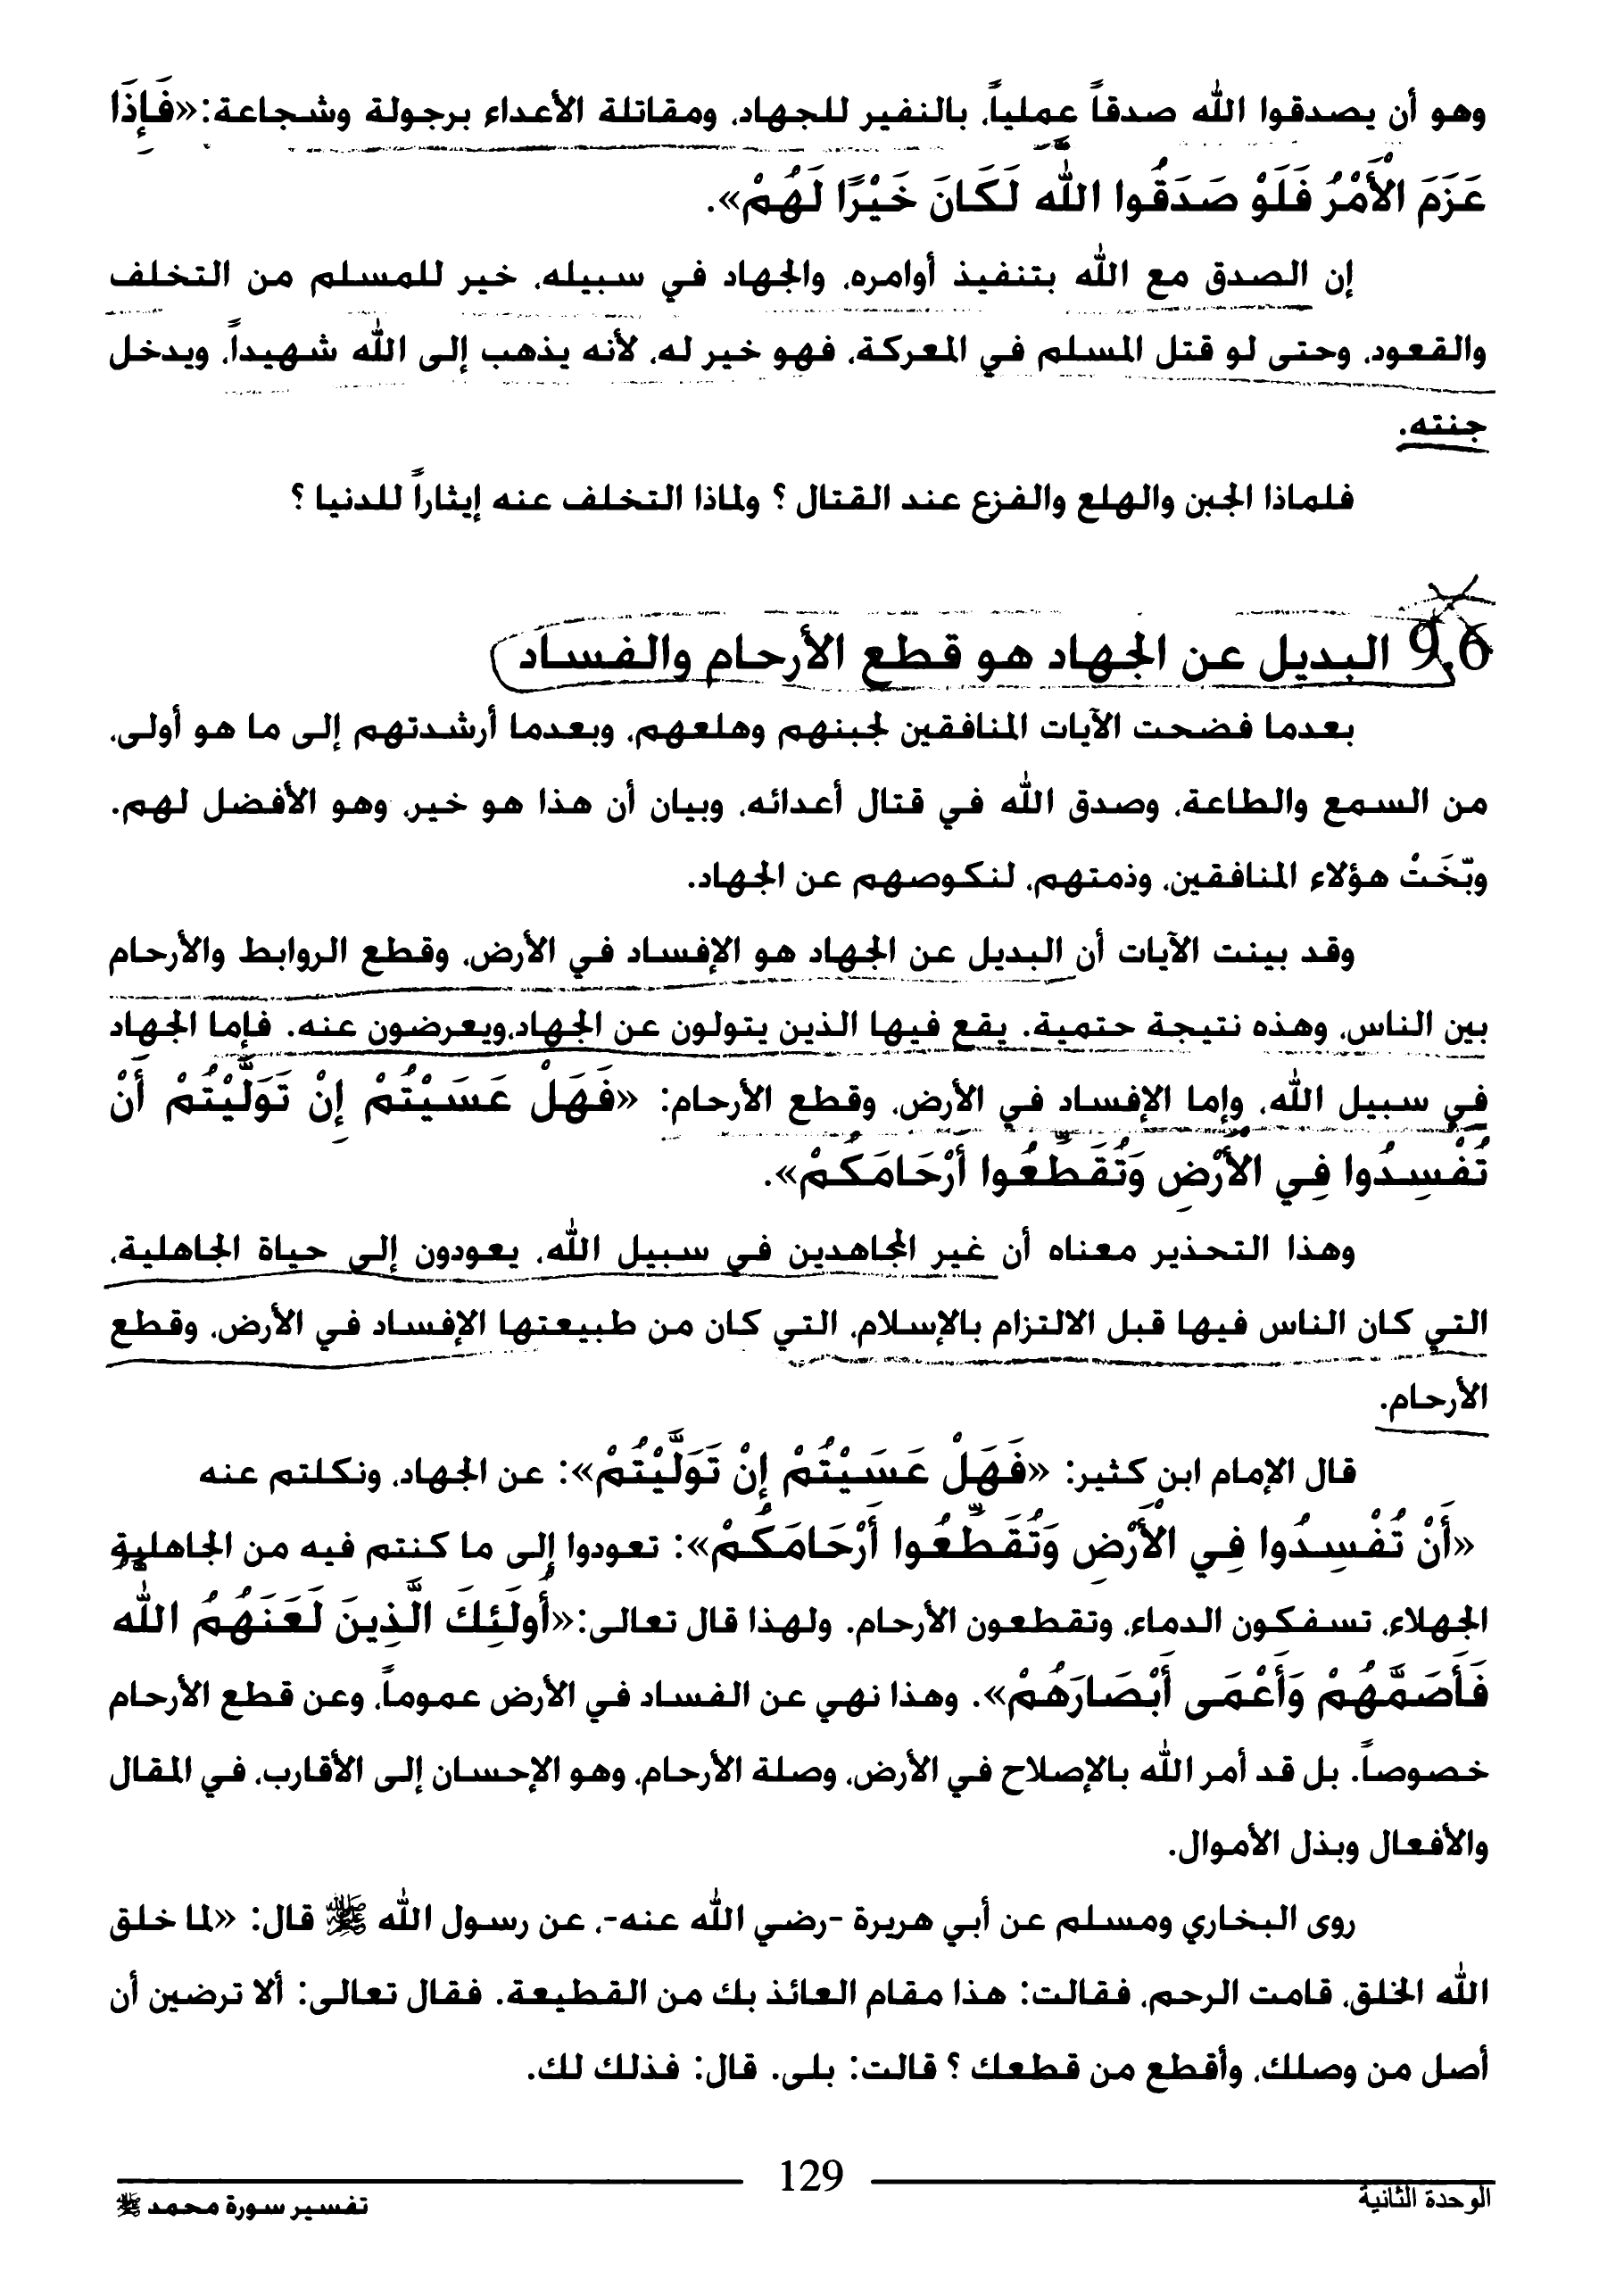 وهو أن يصدقوا الله صدقاً عملياً، بالنفير للجهاد، ومقاتلة الأعداء برجولة وشجاعة:«فَإِذَا
عَزَمَ الْأَمْرُ فَلَوْ صَدَقُوا الله لَكَانَ خَيْرًا لَهُمْ».
إن الصدق مع الله بتنفيذ أوامره، والجهاد في سبيله، خير للمسلم من التخلف
والقعود، وحتى لو قتل المسلم في المعركة، فهو خير له، لأنه يذهب إلى الله شهيداً، ويدخل
جنته.
فلماذا الجبن والهلع والفزع عند القتال ؟ ولماذا التخلف عنه إيثاراً للدنيا ؟
9.6 البديل عن الجهاد هو قطع الأرحام والفساد
بعدما فضحت الآيات المنافقين لجبنهم وهلعهم، وبعدما أرشدتهم إلى ما هو أولى،
من السمع والطاعة، وصدق الله في قتال أعدائه، وبيان أن هذا هو خير، وهو الأفضل لهم.
وبّخَتْ هؤلاء المنافقين، وذمتهم، لنكوصهم عن الجهاد.
وقد بينت الآيات أن البديل عن الجهاد هو الإفساد في الأرض، وقطع الروابط والأرحام
بين الناس، وهذه نتيجة حتمية. يقع فيها الذين يتولون عن الجهاد،ويعرضون عنه. فإما الجهاد
في سبيل الله، وإما الإفساد في الأرض، وقطع الأرحام: «فَهَلْ عَسَيْتُمْ إِنْ تَوَلَّيْتُمْ أَنْ
تُفْسِدُوا فِي الْأَرْضِ وَتُقَطِّعُوا أَرْحَامَكُمْ».
وهذا التحذير معناه أن غير المجاهدين في سبيل الله، يعودون إلى حياة الجاهلية،
التي كان الناس فيها قبل الالتزام بالإسلام، التي كان من طبيعتها الإفساد في الأرض، وقطع
الأرحام.
قال الإمام ابن كثير: «فَهَلْ عَسَيْتُمْ إِنْ تَوَلَّيْتُمْ»: عن الجهاد، ونكلتم عنه
«أَنْ تُفْسِدُوا فِي الْأَرْضِ وَتُقَطِّعُوا أَرْحَامَكُمْ»: تعودوا إلى ما كنتم فيه من الجاهلية
الجهلاء، تسفكون الدماء، وتقطعون الأرحام. ولهذا قال تعالى:«أُولَئِكَ الَّذِينَ لَعَنَهُمُ الله
فَأَصَمَّهُمْ وَأَعْمَى أَبْصَارَهُمْ». وهذا نهي عن الفساد في الأرض عموماً، وعن قطع الأرحام
خصوصاً. بل قد أمر الله بالإصلاح في الأرض، وصلة الأرحام، وهو الإحسان إلى الأقارب، في المقال
والأفعال وبذل الأموال.
روى البخاري ومسلم عن أبي هريرة -رضي الله عنه-، عن رسول الله ﷺ قال: «لما خلق
الله الخلق، قامت الرحم، فقالت: هذا مقام العائذ بك من القطيعة. فقال تعالى: ألا ترضين أن
أصل من وصلك، وأقطع من قطعك ؟ قالت: بلى. قال: فذلك لك.
129
الوحدة الثانية
تفسير سورة محمد ﷺ